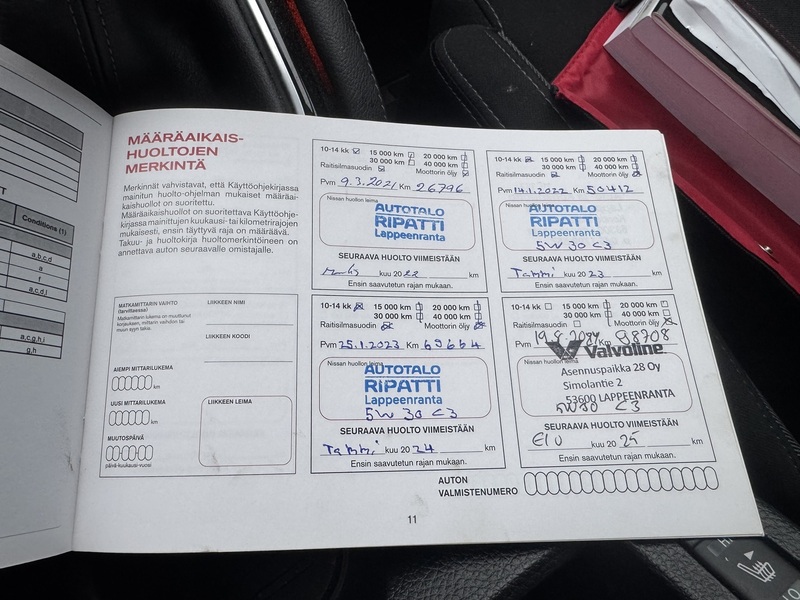 Conditions (1)
a,b,c,d
a
f
a,c,d,i
a,c,g,h,i
g,h
MÄÄRÄAIKAIS-
HUOLTOJEN
MERKINTÄ
Merkinnät vahvistavat, että Käyttöohjekirjassa
mainitun huolto-ohjelman mukaiset määräai-
kaishuollot on suoritettu.
Määräaikaishuollot on suoritettava Käyttöohje-
kirjassa mainittujen kuukausi- tai kilometrirajojen
mukaisesti, ensin täyttyvä raja on määräävä.
Takuu- ja huoltokirja huoltomerkintöineen on
annettava auton seuraavalle omistajalle.
MATKAMITTARIN VAIHTO
(tarvittaessa)
Matkamittarin lukema on muuttunut
korjauksen, mittarin vaihdon tai
muun syyn takia.
AIEMPI MITTARILUKEMA
km
UUSI MITTARILUKEMA
km
MUUTOSPÄIVÄ
päivä-kuukausi-vuosi
LIIKKEEN NIMI
LIIKKEEN KOODI
LIIKKEEN LEIMA
10-14 kk 15 000 km 20 000 km
30 000 km 40 000 km
Raitisilmasuodin Moottorin öljy
Pvm 9.3.2021 Km 26796
AUTOTALO
RIPATTI
Lappeenranta
Nissan huollon leima
SEURAAVA HUOLTO VIIMEISTÄÄN
kuu 2022 km
Ensin saavutetun rajan mukaan.
10-14 kk 15 000 km 20 000 km
30 000 km 40 000 km
Raitisilmasuodin Moottorin öljy
Pvm 14.1.2022 Km 50412
Nissan huollon leima
AUTOTALO
RIPATTI
Lappeenranta
5W30 C3
SEURAAVA HUOLTO VIIMEISTÄÄN
Tammi kuu 2023 km
Ensin saavutetun rajan mukaan.
10-14 kk 15 000 km 20 000 km
30 000 km 40 000 km
Raitisilmasuodin Moottorin öljy
Pvm 25.1.2023 Km 69664
Nissan huollon leima
AUTOTALO
RIPATTI
Lappeenranta
5W30 C3
SEURAAVA HUOLTO VIIMEISTÄÄN
Tammi kuu 2024 km
Ensin saavutetun rajan mukaan.
10-14 kk 15 000 km 20 000 km
30 000 km 40 000 km
Raitisilmasuodin Moottorin öljy
Pvm 19.8.2024 Km 98708
Valvoline
Nissan huollon leima
Asennuspaikka 28 Oy
Simolantie 2
53600 LAPPEENRANTA
5W30 C3
SEURAAVA HUOLTO VIIMEISTÄÄN
Elo kuu 2025 km
Ensin saavutetun rajan mukaan.
AUTON
VALMISTENUMERO
11